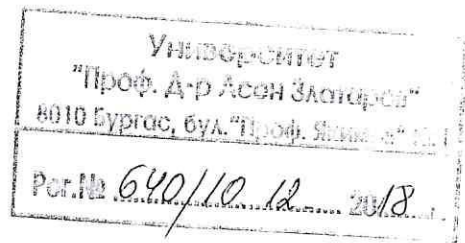 Университет
"Проф. Д-р Асен Златаров"
8010 Бургас, бул. "Проф.
Рег.№ 640/10.12. 2018 г.